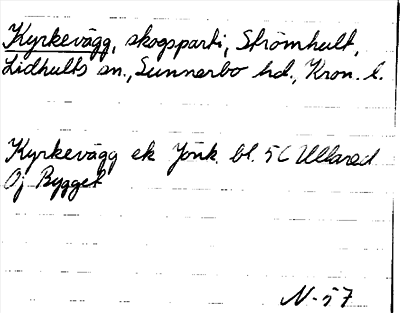 Kyrkevägg, skogsparti, Strömhult,
Lidhults sn., Sunnerbo hd., Kron. l.
Kyrkevägg ek Jönk. bl. 5C Ullared
Oj Bygget
N-57